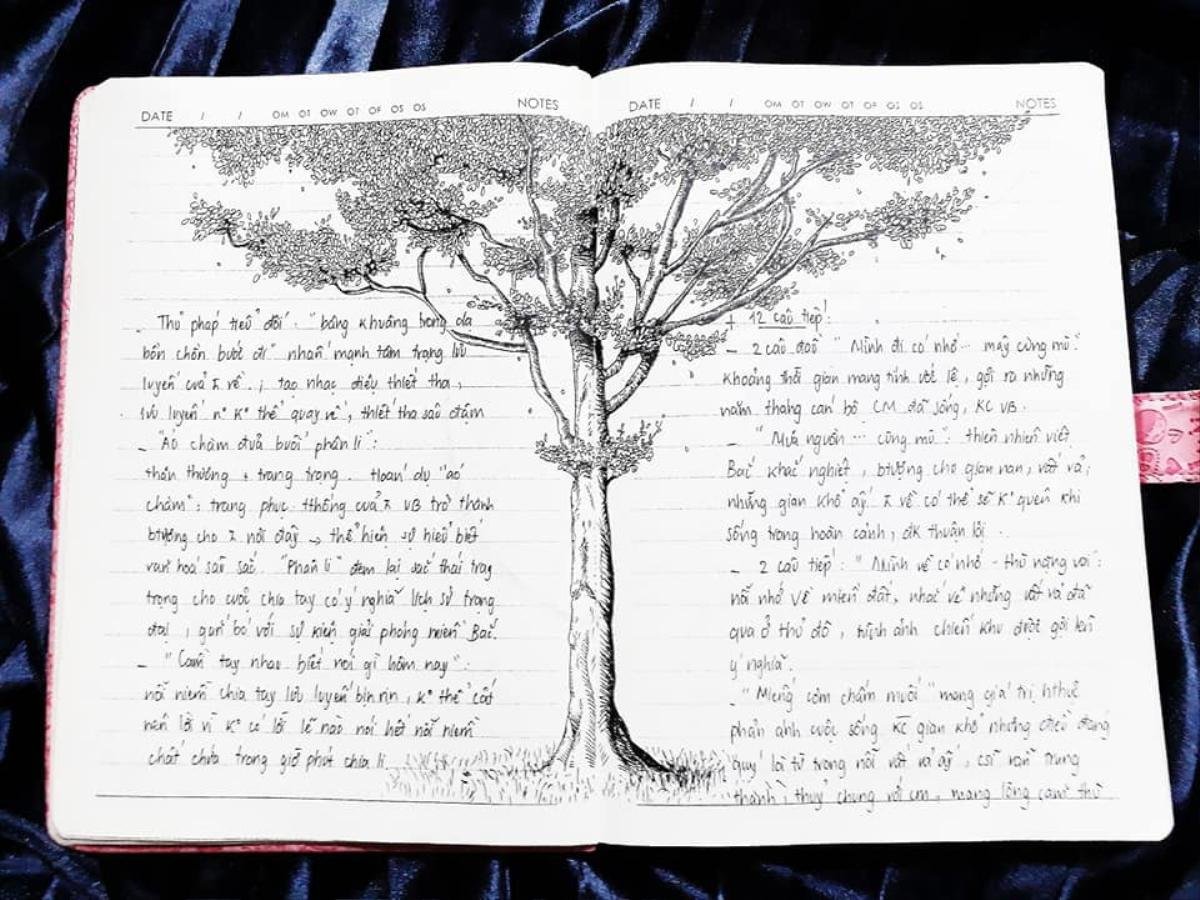 DATE / / OM OT OW OT OF OS OS NOTES
- Thủ pháp tiểu đối: "bâng khuâng trong dạ
bồn chồn bước đi" nhấn mạnh tâm trạng lưu
luyến của ⊼ về; tạo nhạc điệu thiết tha,
lưu luyến n° K° thể quay về, thiết tha sâu đậm
- "Áo chàm đưa buổi phân li":
thân thương + trang trọng. Hoán dụ "áo
chàm": trang phục tthống của ⊼ VB trở thành
btượng cho ⊼ nơi đây → thể hiện sự hiểu biết
văn hoá sâu sắc. "Phân li" đem lại sắc thái trag
trọng cho cuộc chia tay có ý nghĩa lịch sử trọng
đại, gắn bó với sự kiện giải phóng miền Bắc.
- "Cầm tay nhau biết nói gì hôm nay":
nỗi niềm chia tay lưu luyến bịn rịn, k° thể cất
nên lời vì K° có lời lẽ nào nói hết nỗi niềm
chất chứa trong giờ phút chia li
DATE / / OM OT OW OT OF OS OS NOTES
+ 12 câu tiếp:
- 2 câu đầu "Mình đi có nhớ ... mây cùng mù":
Khoảng thời gian mang tính ước lệ, gợi ra những
năm tháng cán bộ CM đã sống, KC VB.
- "Mưa nguồn ... cùng mù": thiên nhiên Việt
Bắc khắc nghiệt, btượng cho gian nan, vất vả;
những gian khổ ấy ⊼ về có thể sẽ K° quen khi
sống trong hoàn cảnh, đk thuận lợi.
- 2 câu tiếp: "Mình về có nhớ - thù nặng vai":
nỗi nhớ về miền đất, nhắc về những vất vả đã
qua ở thủ đô, hình ảnh chiến khu được gợi lên
ý nghĩa.
- "Miếng cơm chấm muối" mang giá trị hthực
phản ánh cuộc sống KC gian khổ nhưng điều đáng
quý là từ trong nỗi vất vả ấy, csĩ vẫn trung
thành, thuỷ chung với cm, mang lòng căm thù